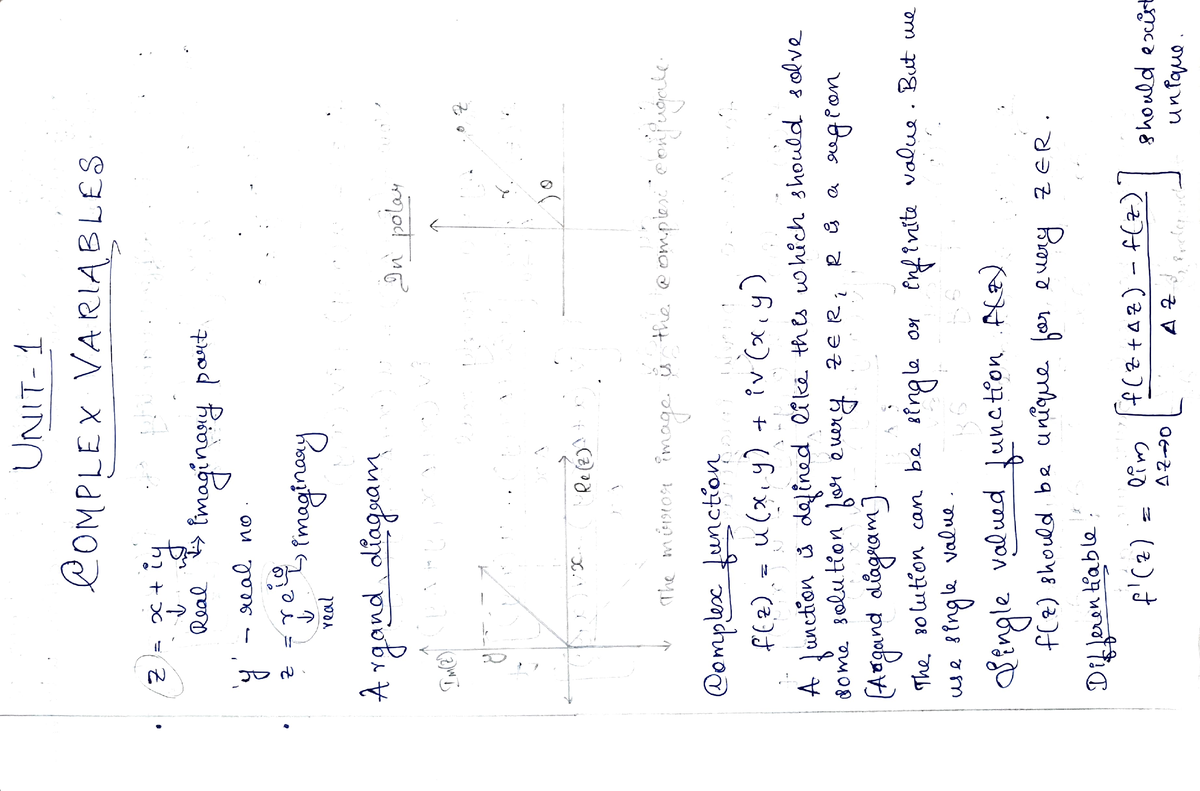 UNIT-1
COMPLEX VARIABLES
z = x + iy
Real → imaginary part
'y' - real no.
z = r e^iθ → imaginary
real
Argand diagram
In polar
Im(z)
y
x
Re(z)
r
θ
z
The mirror image is the complex conjugate.
Complex function
f(z) = u(x,y) + iv(x,y)
A function is defined like this which should solve
some solution for every z ∈ R, R is a region
[Argand diagram]
The solution can be single or infinite value. But we
use single value.
Single valued function f(z)
f(z) should be unique for every z ∈ R.
Differentiable:
f'(z) = lim Δz→0 [ f(z+Δz) - f(z) / Δz ] should exist
unique.